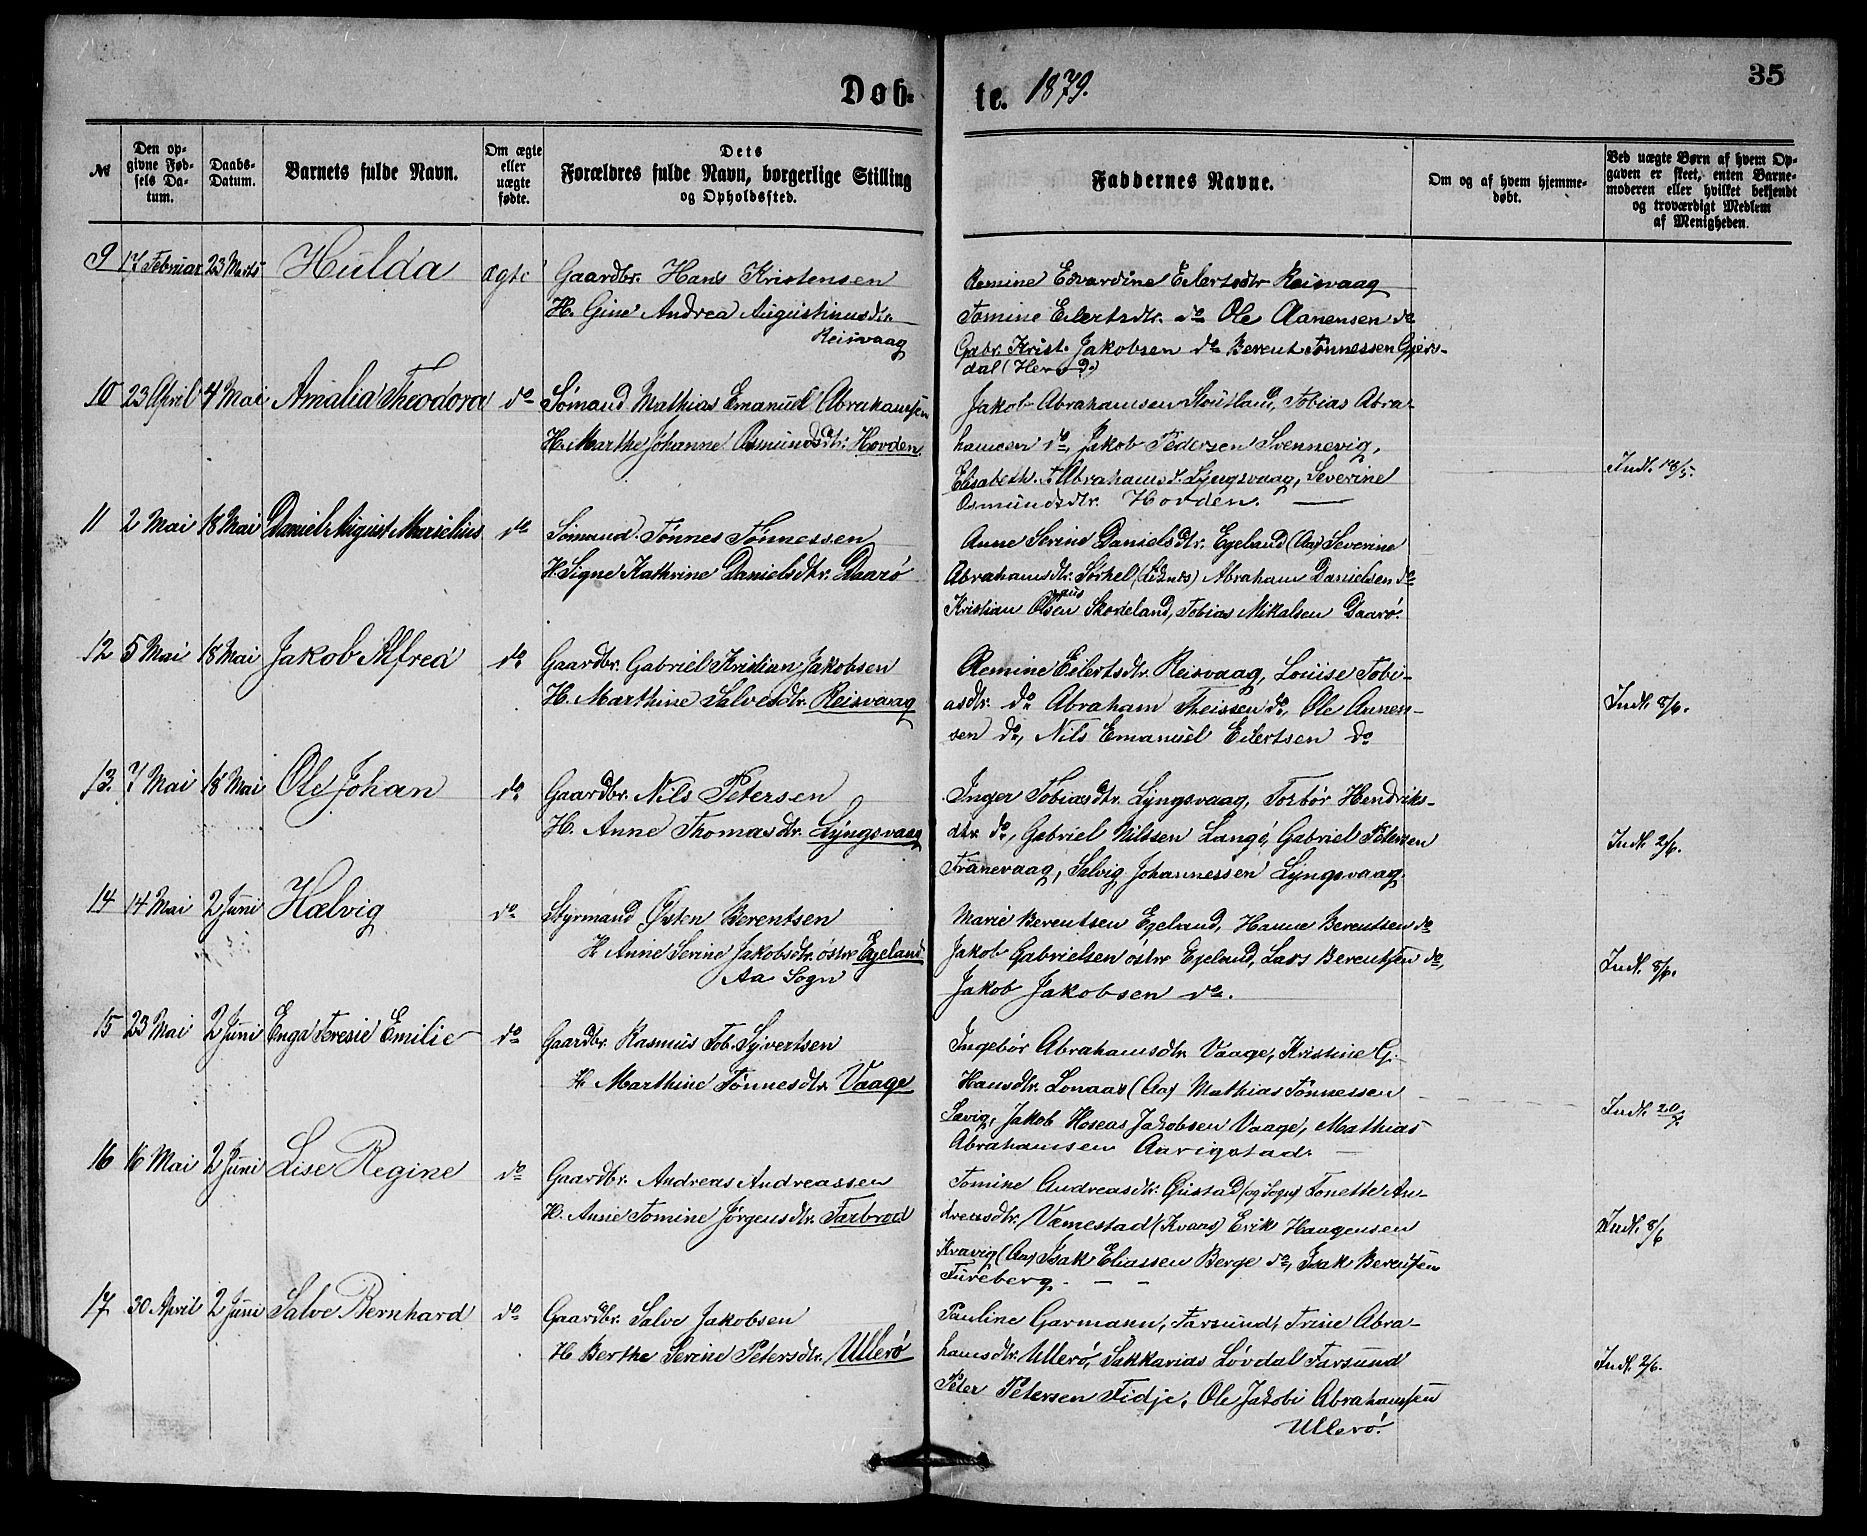 35
Døb-
te. 1879.
№
Den op-
givne Fød-
sels Da-
tum.
Daabs-
Datum.
Barnets fulde Navn.
Om ægte
eller
uægte
fødte.
Dets
Forældres fulde Navn, borgerlige Stilling
og Opholdssted.
Faddernes Navne.
Om og af hvem hjemme-
døbt.
Ved uægte Børn af hvem Op-
gaven er skeet, enten Barne-
moderen eller hvilket bekjendt
og troværdigt Medlem
af Menigheden.
9 17 Februar 23 Marts Hulda ægte
Gaardbr. Hans Kristensen
H. Gine Andrea Augustinusdtr.
Reisvaag
Remine Edvardine Eilertsdtr Reisvaag
Tomine Eilertsdtr. do Ole Aanensen do
Gabr. Krist. Jakobsen do Berent Tønnessen
dal (Herred)
10 23 April 4 Mai Amalia Theodora do
Sømand Mathias Emanuel Abrahamsen
H. Marthe Johanne Osmundsdtr. Hovden.
Jakob Abrahamsen Stoutland, Tobias Abra-
hamsen do, Jakob Pedersen Svennevig,
Elisabeth Abrahamsd. Lyngsvaag, Severine
Osmundsdtr. Hovden.
Indl. 18/5.
11 2 Mai 18 Mai Daniel August Marselius do
Sømand Tønnes Tønnessen
H. Signe Kathrine Danielsdtr. Daarø
Anne Serine Danielsdtr. Egeland (Aa) Severine
Abrahamsdtr. Sørkel (Lidnes) Abraham Danielsen do
Kristian Olsen Skodeland, Tobias Mikalsen Daarø.
12 5 Mai 18 Mai Jakob Alfred do
Gaardbr. Gabriel Kristian Jakobsen
H. Marthine Salvesdtr. Reisvaag
Remine Eilertsdtr. Reisvaag, Louise Tobi-
asdtr. do Abraham Theissen do, Ole Aanen-
sen do, Nils Emanuel Eilertsen do
Indl. 8/6.
13. 7 Mai 18 Mai Ole Johan do
Gaardbr. Nils Petersen
H. Anne Thomasdtr. Lyngsvaag
Inger Tobiasdtr. Lyngsvaag, Torbør Hendriks-
dtr. do, Gabriel Nilsen Langø, Gabriel Petersen
Tranevaag, Salvig Johannessen Lyngsvaag.
Indl. 2/6.
14 14 Mai 2 Juni Hælvig do
Styrmand Østen Berentsen
H. Anne Serine Jakobsdtr. østre Egeland
Aa Sogn
Marie Berentsen Egeland, Hanna Berentsen do
Jakob Gabrielsen østre Egeland, Lars Berentsen do,
Jakob Jakobsen do.
Indl. 8/6.
15 23 Mai 2 Juni Enga Teresie Emilie do
Gaardbr. Rasmus Tob. Syvertsen
H. Marthine Tønnesdtr. Vaage
Ingebør Abrahamsdtr. Vaage, Kristine G.
Hansdtr. Lonaas (Aa) Mathias Tønnessen
Sævig, Jakob Hoseas Jakobsen Vaage, Mathias
Abrahamsen Aarigstad.
Indl. 20/7.
16 16 Mai 2 Juni Lise Regine do
Gaardbr. Andreas Andreassen
H. Anne Tomine Jørgensdtr. Farbrod
Tomine Andreasdtr. Øiestad (og Sogn) Tonette An-
dreasdtr. Vamestad (Kvaas) Erik Haagensen
Kravig (Aa) Isak Eliassen Berge do, Isak Berentsen
Tureberg.
Indl. 8/6
17 30 April 2 Juni Salve Bernhard do
Gaardbr. Salve Jakobsen
H. Berthe Serine Petersdtr. Ullerø
Pauline Garmann, Farsund, Trine Abra-
hamsdtr. Ullerø, Sakkarias Løvdal Farsund
Peter Petersen Fidje, Ole Jakobi Abrahamsen
Ullerø.
Indl. 2/6.